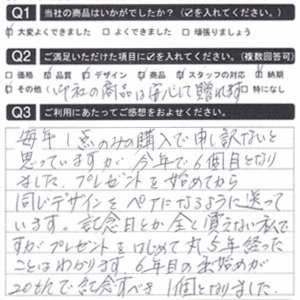 Q1 当社の商品はいかがでしたか？（☑を入れてください。）
☑大変よくできました □よくできました □頑張りましょう
Q2 ご満足いただけた項目に☑を入れてください。（複数回答可）
□価格 ☑品質 ☑デザイン □商品 □スタッフの対応 □納期
☑その他（御社の商品は安心して贈れます） □特になし
Q3 ご利用にあたってご感想をおよせください。
毎年1点のみの購入で申し訳ないと
思っていますが今年で6個目となり
ました。プレゼントを始めてから
同じデザインをペアになるように送って
います。記念日とか全く覚えない私で
すがプレゼントをはじめて丸5年経った
ことはわかります。6年目の 始めが
20thで記念すべき1個となりました。